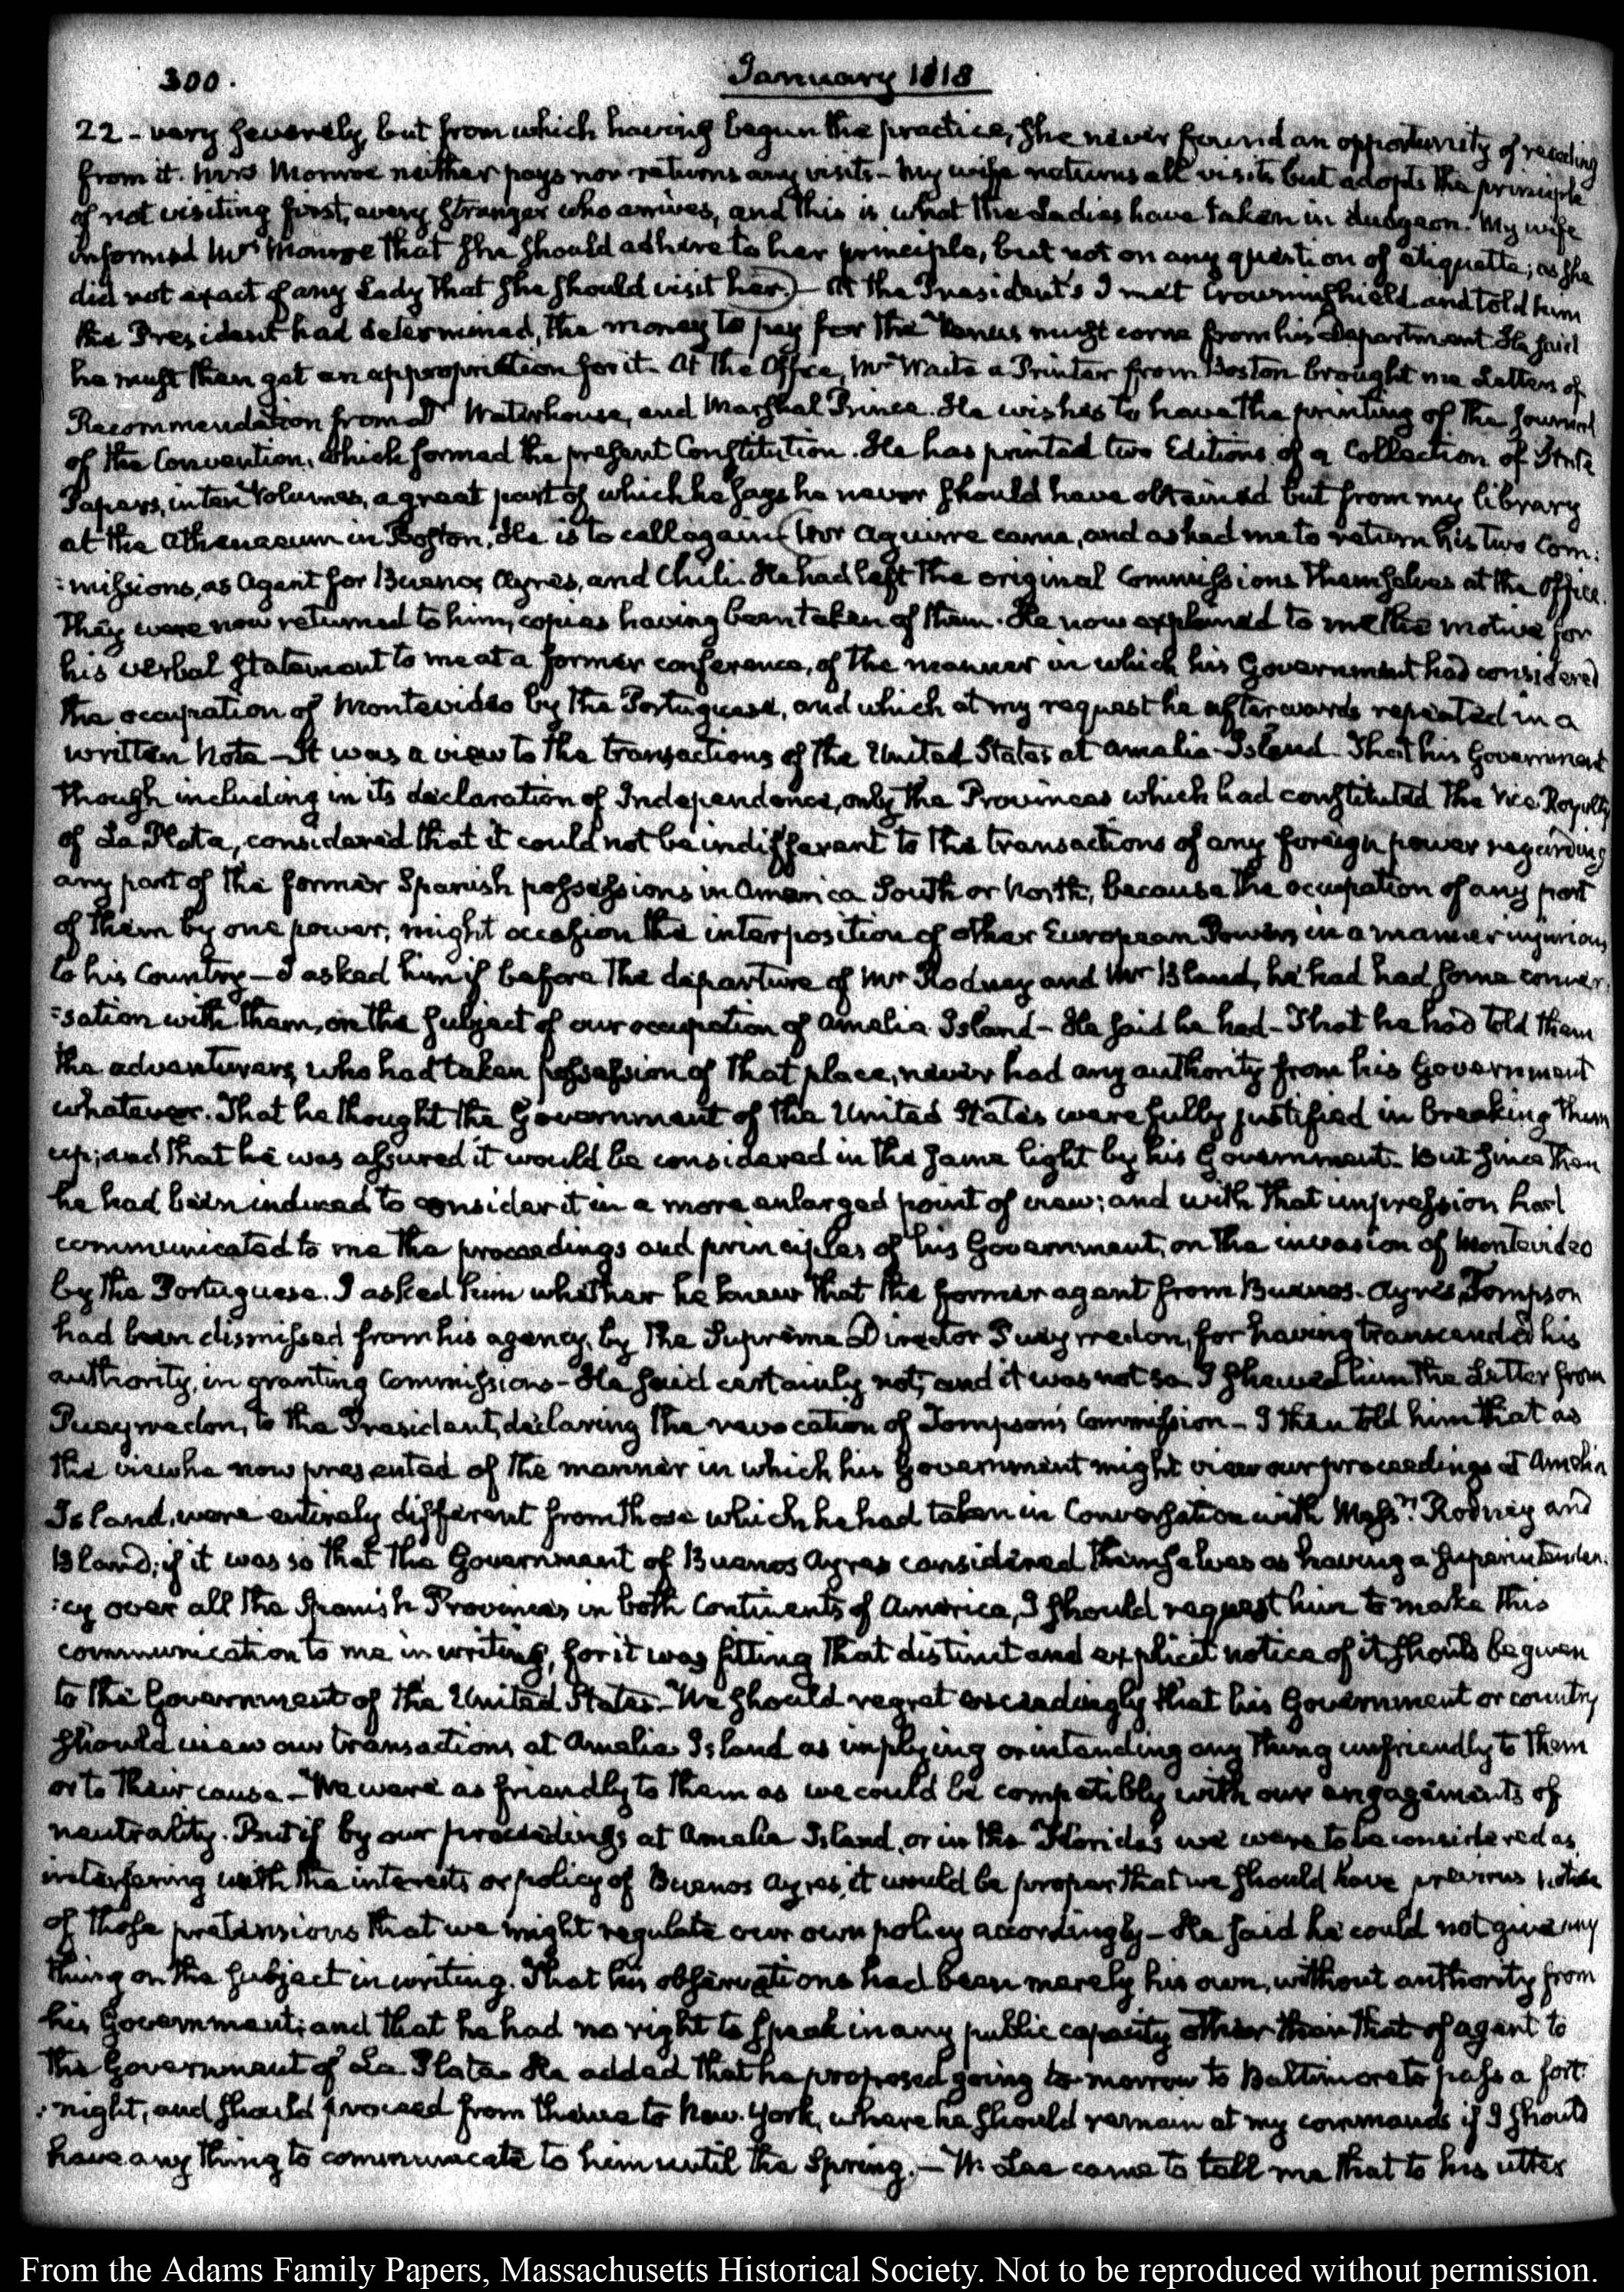 300.
January 1818
22 - very severely, but from which having begun the practice, she never found an opportunity of receding
from it. Mrs Monroe neither pays nor returns any visits - My wife returns all visits but adopts the principle
of not visiting first, every Stranger who arrives, and this is what the Ladies have taken in dudgeon. My wife
informed Mrs Monroe that she should adhere to her principle, but not on any question of etiquette; as she
did not exact of any Lady that she should visit her.) - At the President's I met Crowninshield and told him
the President had determined, the money to pay for the Venus must come from his Department. He said
he must then get an appropriation for it. At the Office, Mr Waite a Printer from Boston brought me Letters of
Recommendation from Dr Waterhouse, and Marshal Prince. He wishes to have the printing of the Journal
of the Convention, which formed the present Constitution. He has printed two Editions of a Collection of State
Papers, in ten Volumes, a great part of which he says he never should have obtained but from my library
at the Athenaeum in Boston. He is to call again (Mr Aguirre came, and asked me to return his two Com:
:missions, as Agent for Buenos Ayres, and Chili. He had left the original Commissions themselves at the Office.
They were now returned to him, copies having been taken of them. He now explained to me the motive for
his verbal statement to me at a former conference, of the manner in which his Government had considered
the occupation of Montevideo by the Portuguese, and which at my request he afterwards repeated in a
written Note - It was a view to the transactions of the United States at Amelia Island. That his Government
though including in its declaration of Independence, only the Provinces which had constituted the Vice-Royalty
of La Plata, considered that it could not be indifferent to the transactions of any foreign power regarding
any part of the former Spanish possessions in America South or North, because the occupation of any part
of them by one power, might occasion the interposition of other European Powers in a manner injurious
to his Country - I asked him if before the departure of Mr Rodney and Mr Bland, he had had some conver:
:sation with them, on the subject of our occupation of Amelia Island - He said he had - That he had told them
the adventurers, who had taken possession of that place, never had any authority from his Government
whatever. That he thought the Government of the United States were fully justified in breaking them
up; and that he was assured it would be considered in the same light by his Government. But since then
he had been induced to consider it in a more enlarged point of view; and with that impression had
communicated to me the proceedings and principles of his Government, on the invasion of Montevideo
by the Portuguese. I asked him whether he knew that the former agent from Buenos-Ayres, Tompson
had been dismissed from his agency, by the Supreme Director Pueyrredon, for having transcended his
authority, in granting Commissions - He said certainly not, and it was not so. I shewed him the Letter from
Pueyrredon, to the President, declaring the revocation of Tompson's Commission - I then told him that as
the view he now presented of the manner in which his Government might view our proceedings at Amelia
Island, were entirely different from those which he had taken in Conversation with Messrs Rodney and
Bland; if it was so that the Government of Buenos Ayres considered themselves as having a superintenden:
:cy over all the Spanish Provinces in both Continents of America, I should request him to make this
communication to me in writing, for it was fitting that distinct and explicit notice of it should be given
to the Government of the United States. - We should regret exceedingly that his Government or country
should view our transactions at Amelia Island as implying or intending any thing unfriendly to them
or to their cause - We were as friendly to them as we could be compatibly with our engagements of
neutrality. But if by our proceedings at Amelia Island, or in the Florida's we were to be considered as
interfering with the interests or policy of Buenos Ayres, it would be proper that we should have previous notice
of those pretensions that we might regulate our own policy accordingly - He said he could not give any
thing on the subject in writing. That his observations had been merely his own, without authority from
his Government; and that he had no right to speak in any public capacity other than that of agent to
the Government of La Plata. He added that he proposed going to-morrow to Baltimore to pass a fort:
:night, and should proceed from thence to New-York, where he should remain at my commands if I should
have any thing to communicate to him until the Spring. - W. Lee came to tell me that to his utter
From the Adams Family Papers, Massachusetts Historical Society. Not to be reproduced without permission.